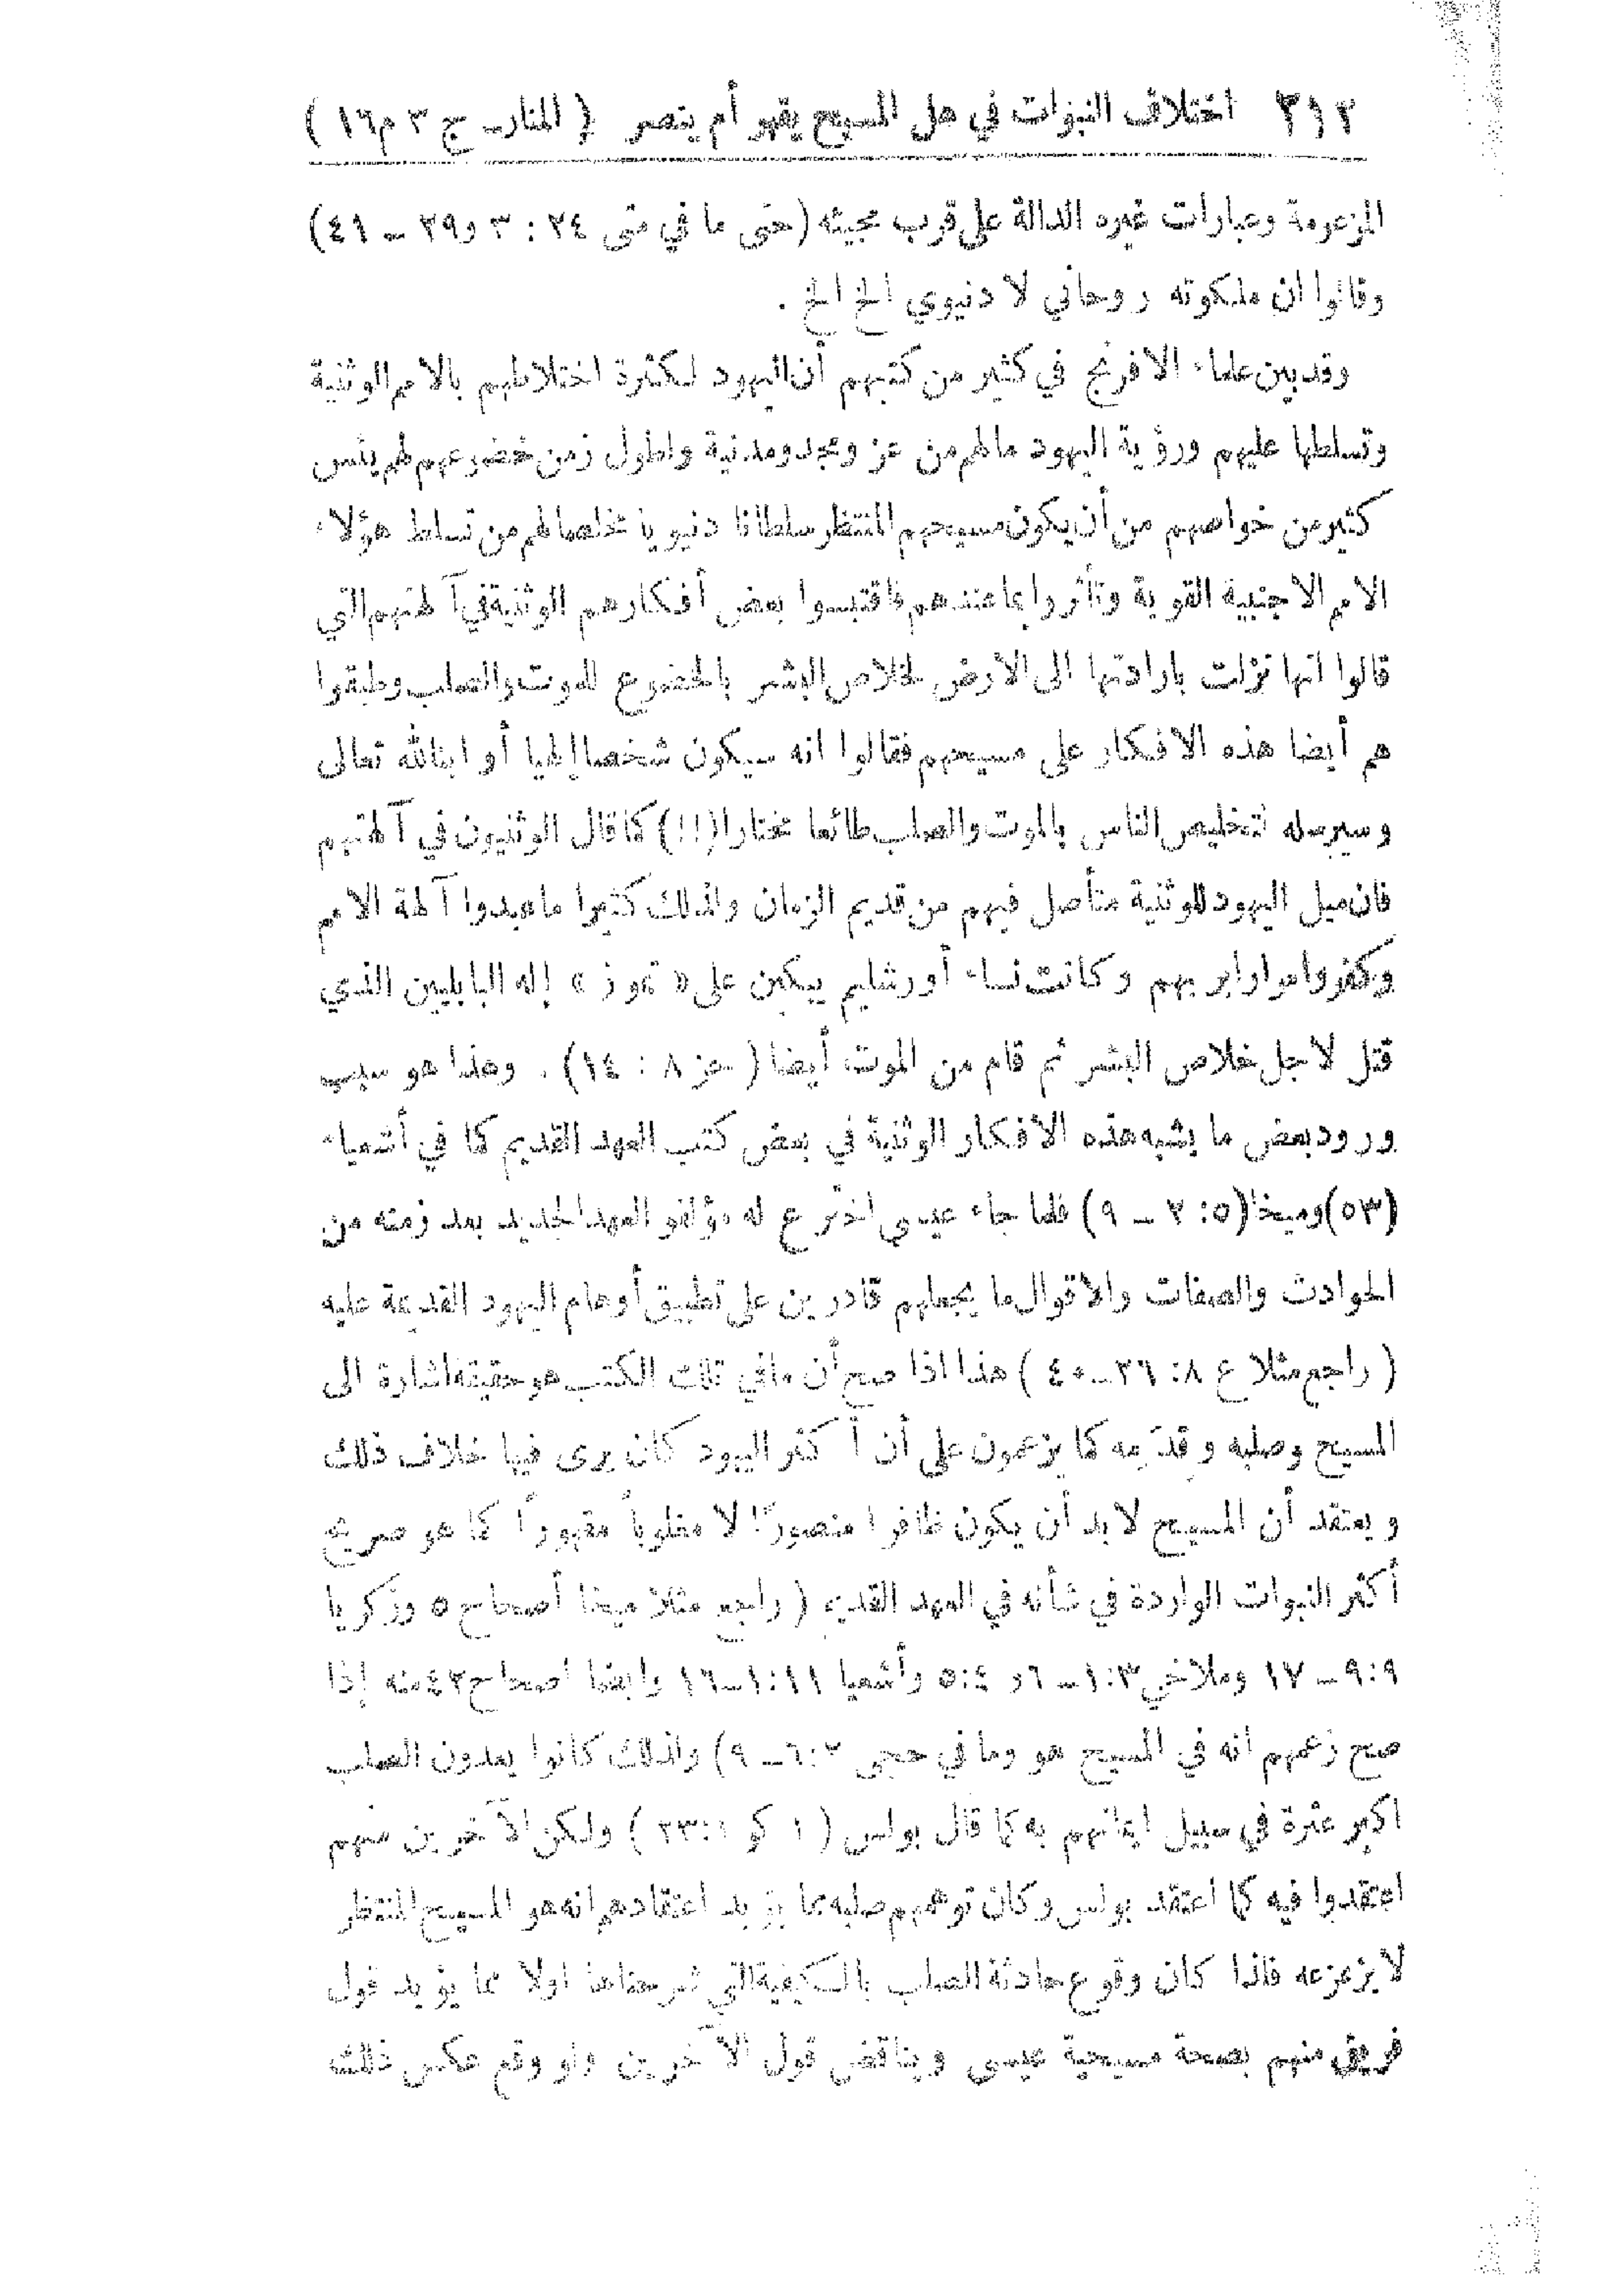 ٢١٢ اختلاف النبوات في هل المسيح يقهر أم ينصر ( المنار ـ ج ٣ م ١٦ )
المزعومة وعبارات غيره الدالة على قرب مجيئه (حتى ما في متى ٢٤ : ٣ و٢٩ ــ ٤١)
وقالوا ان ملكوته روحاني لا دنيوي الخ الخ .
وقد بين علماء الافرنج في كثير من كتبهم أن اليهود لكثرة اختلاطهم بالامم الوثنية
وتسلطها عليهم ورؤية اليهود ما لهم من عز ومجد ومدنية ولطول زمن خضوعهم لهم يئس
كثير من خواصهم من أن يكون مسيحهم المنتظر سلطانا دنيويا مخلصا لهم من تسلط هؤلاء
الامم الاجنبية القوية وتأثروا بما عندهم فاقتبسوا بعض أفكارهم الوثنية في آلهتهم التي
قالوا انها نزلت بارادتها الى الأرض لخلاص البشر بالخضوع للموت والصلب وطبقوا
هم أيضا هذه الافكار على مسيحهم فقالوا انه سيكون شخصا إلهيا أو ابنا لله تعالى
وسيرسله لتخليص الناس بالموت والصلب طائعا مختارا (!!) كما قال الوثنيون في آلهتهم
فان ميل اليهود للوثنية متأصل فيهم من قديم الزمان ولذلك كثيرا ما عبدوا آلهة الامم
وكفروا مرارا بربهم وكانت نساء أورشليم يبكين على « تموز » إله البابليين الذي
قتل لاجل خلاص البشر ثم قام من الموت أيضا ( حز ٨ : ١٤) . وهذا هو سبب
ورود بعض ما يشبه هذه الأفكار الوثنية في بعض كتب العهد القديم كما في أشعياء
(٥٣) وميخا (٥: ٢ ــ ٩) فلما جاء عيسى اخترع له مؤلفو العهد الجديد بعد زمنه من
الحوادث والصفات والأقوال ما يجعلهم قادرين على تطبيق أوهام اليهود القديمة عليه
( راجع مثلا ع ٨: ٢٦ــ٤٠ ) هذا اذا صح أن ما في تلك الكتب هو حقيقة اشارة الى
المسيح وصلبه وقدمه كما يزعمون على أن أكثر اليهود كان يرى فيها خلاف ذلك
ويعتقد أن المسيح لابد أن يكون ظافرا منصورًا لا مغلوباً مقهوراً كما هو صريح
أكثر النبوات الواردة في شأنه في العهد القديم ( راجع مثلا ميخا أصحاح ٥ وزكريا
٩:٩ ــ ١٧ وملاخي ٣:١ ــ ٦ و ٤:٥ وأشعيا ١١:١ــ١٦ وايضا اصحاح ٤٢ منه إذا
صح زعمهم انه في المسيح هو وما في حجى ٢:٦ــ ٩) ولذلك كانوا يعدون الصلب
اكبر عثرة في سبيل ايمانهم به كما قال بولس ( ١ كو ١:٢٣ ) ولكن الآخرين منهم
اعتقدوا فيه كما اعتقد بولس وكان توهمهم صلبه مما يزيد اعتقادهم انه هو المسيح المنتظر
لا يزعزعه فاذا كان وقوع حادثة الصلب بالكيفية التي شرحناها اولا مما يؤيد قول
فريق منهم بصحة مسيحية عيسى ويناقض قول الآخرين ولو وقع عكس ذلك